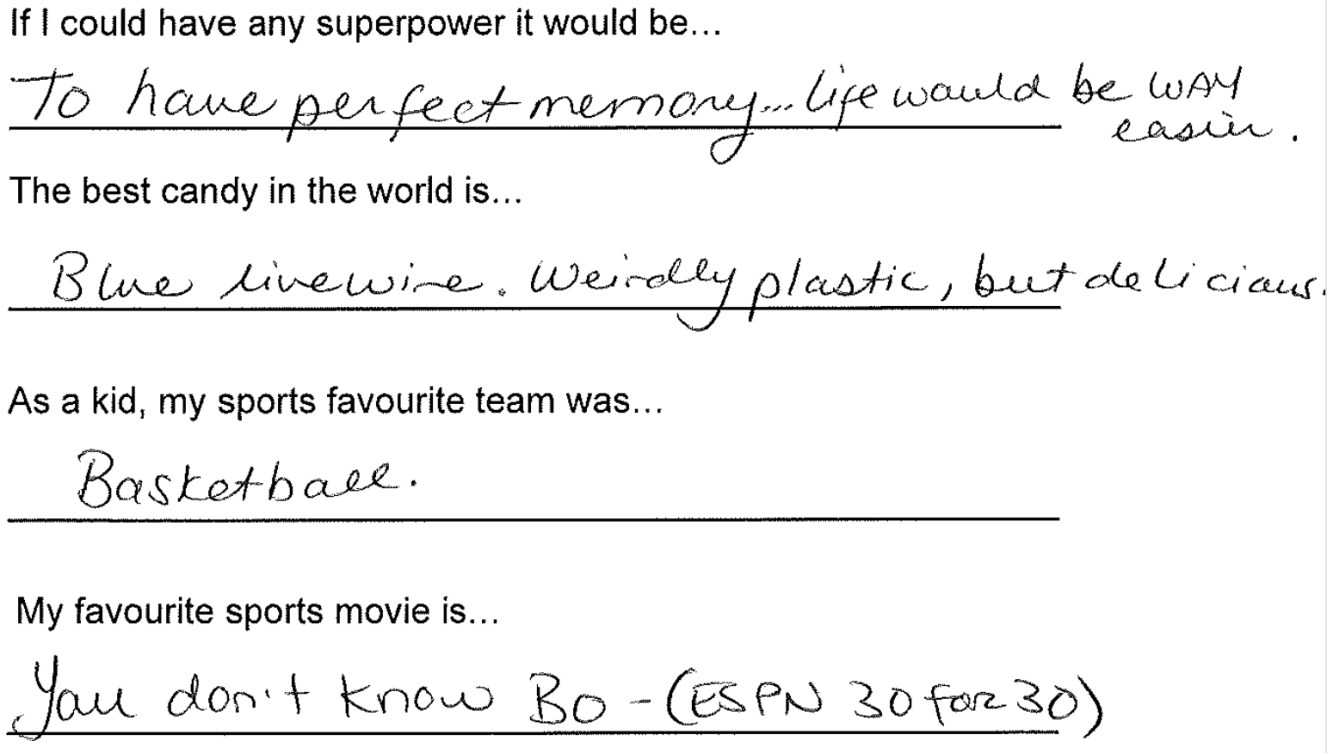 If I could have any superpower it would be...
To have perfect memory... life would be WAY
easier.
The best candy in the world is...
Blue livewire. Weirdly plastic, but delicious.
As a kid, my sports favourite team was...
Basketball.
My favourite sports movie is...
You don't know Bo - (ESPN 30 for 30)